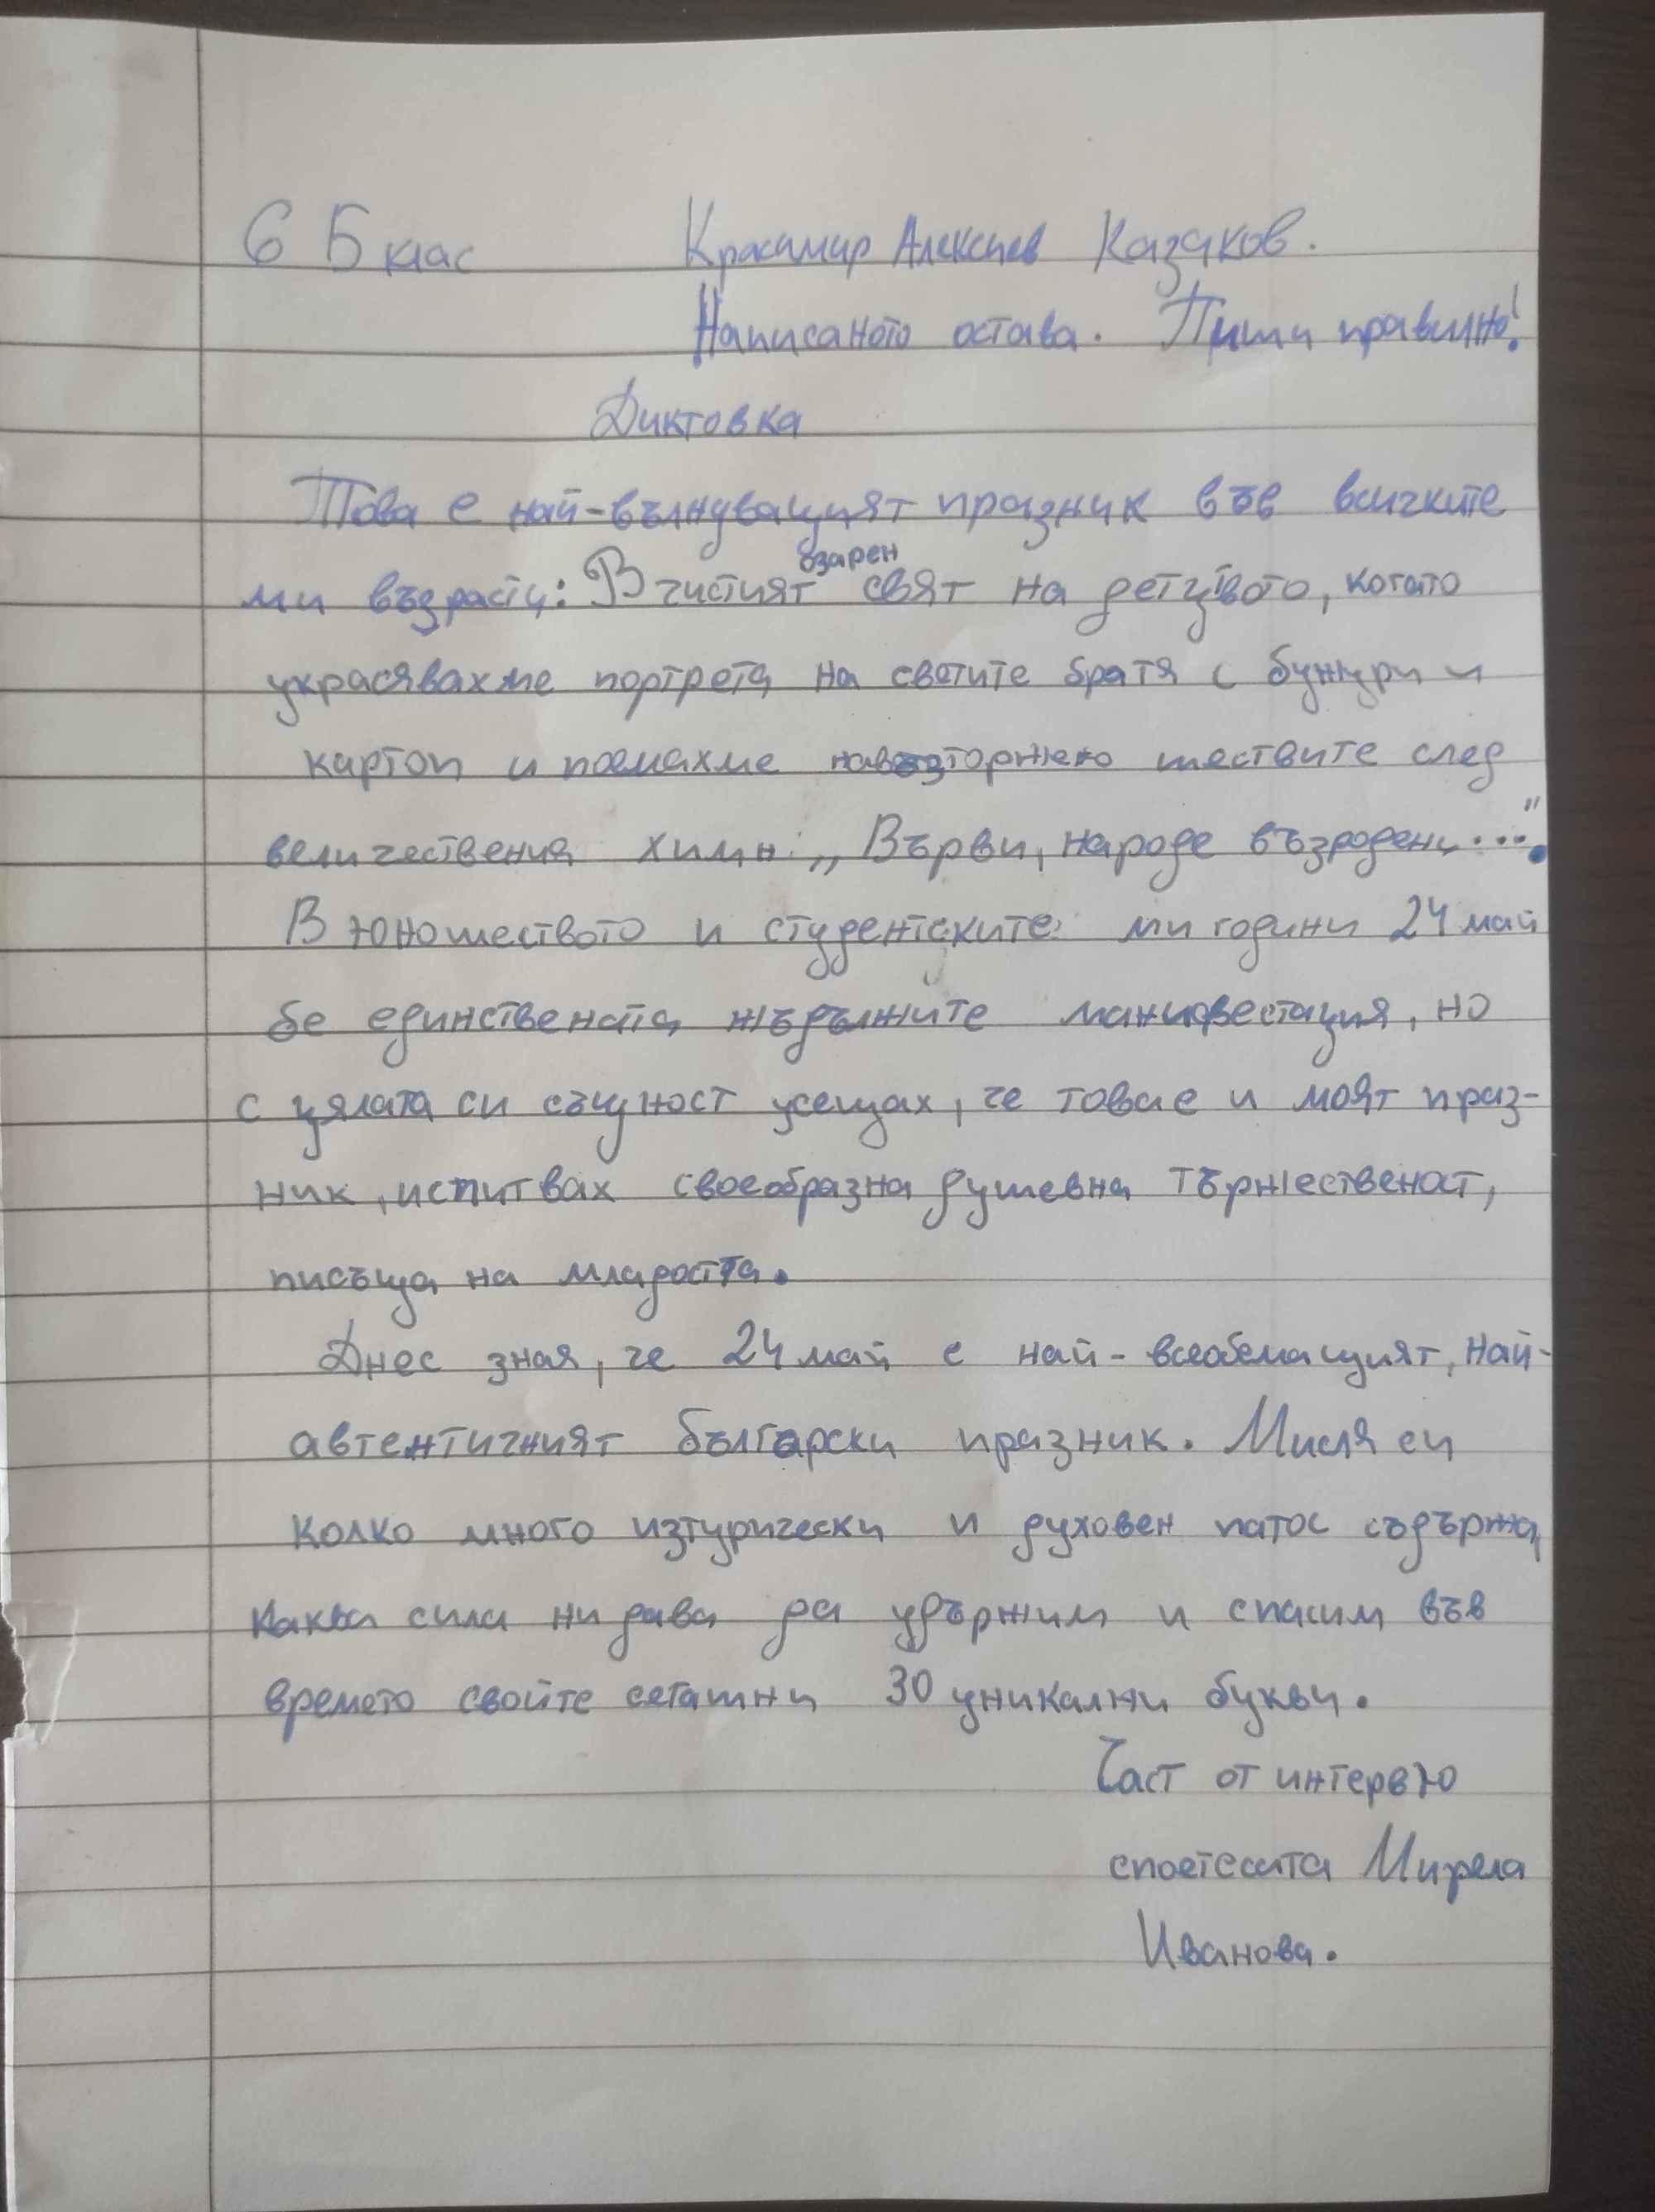 6 Б клас Красимир Алексиев Казаков.
Написаното остава. Пиши правилно!
Диктовка
Това е най-вълнуващият празник във всичките
ми възрасти: В чистият озарен свят на детцтвото, когато
украсявахме портрета на светите братя с бужури и
картоп и поемахме навъзторжено шествите след
величествения химн: „Върви, народе възродени...".
В юношеството и студентските ми години 24 май
бе единствената жъдължите манифестация, но
с цялата си същност усещах, че товае и моят праз-
ник, испитвах своеобразна душевна тържественост,
писъща на младостта.
Днес зная, че 24 май е най-всеобемащият, най-
автентичният български празник. Мисля си
колко много изтурически и духовен патос съдържа,
каква сила ни дава да удържим и спасим във
времето свойте сегашни 30 уникални букви.
Част от интервю
споетесата Мирела
Иванова.